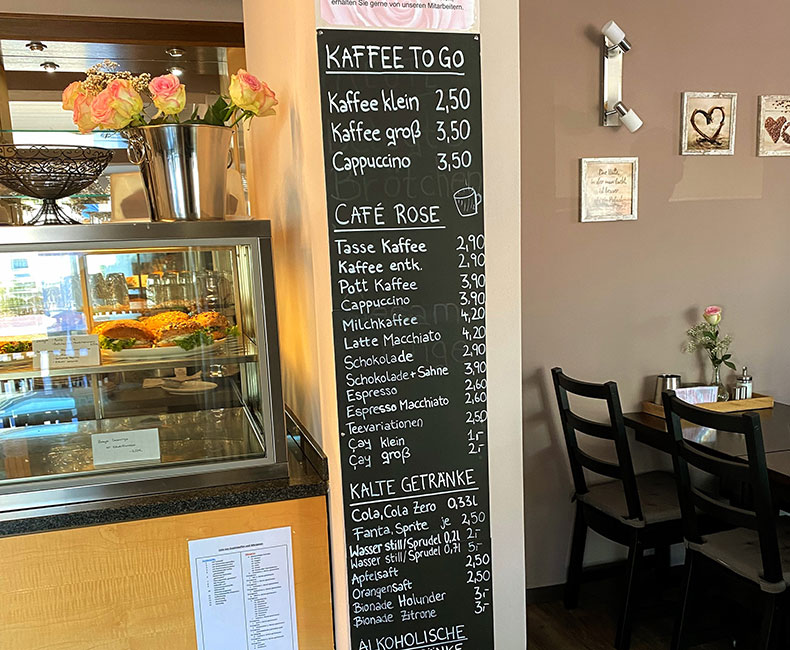 erhalten Sie gerne von unseren Mitarbeitern.
KAFFEE TO GO
Kaffee klein 2,50
Kaffee groß 3,50
Cappuccino 3,50
CAFÉ ROSE
Tasse Kaffee 2,90
Kaffee entk. 2,90
Pott Kaffee 3,90
Cappuccino 3,90
Milchkaffee 4,20
Latte Macchiato 4,20
Schokolade 2,90
Schokolade + Sahne 3,90
Espresso 2,60
Espresso Macchiato 2,60
Teevariationen 2,50
Çay klein 1,-
Çay groß 2,-
KALTE GETRÄNKE
Cola, Cola Zero 0,33l
Fanta, Sprite je 2,50
Wasser still/Sprudel 0,2l 2,-
Wasser still/Sprudel 0,7l 5,-
Apfelsaft 2,50
Orangensaft 2,50
Bionade Holunder 3,-
Bionade Zitrone 3,-
ALKOHOLISCHE